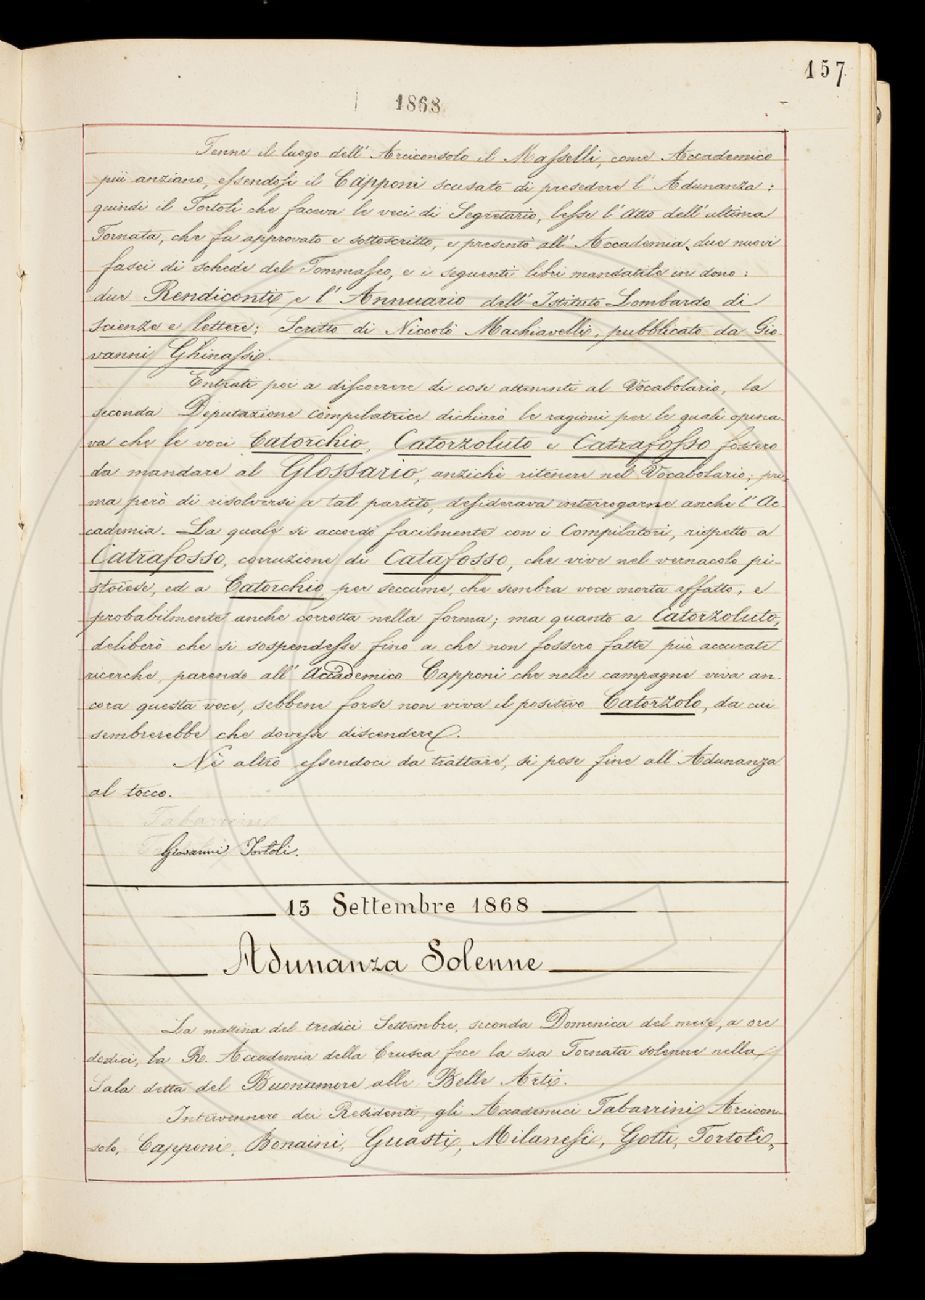 157
1868
Tenne il luogo dell' Arciconsolo il Masselli, come Accademico
più anziano, essendosi il Capponi scusato di presedere l' Adunanza:
quindi il Tortoli che faceva le veci di Segretario, lesse l'Atto dell'ultima
Tornata, che fu approvato e sottoscritto, e presentò all' Accademia due nuovi
fasci di schede del Tommaseo, e i seguenti libri mandatile in dono:
due Rendiconti e l'Annuario dell'Istituto Lombardo di
Scienze e lettere; Scritto di Niccolò Machiavelli, pubblicato da Gio-
vanni Ghinassi.
Entrati poi a discorrere di cose attenenti al Vocabolario, la
seconda Deputazione compilatrice dichiarò le ragioni per le quali opina-
va che le voci Catorchio, Catorzoluto e Catrafosso fossero
da mandare al Glossario, anzichè ritenere nel Vocabolario; pri-
ma però di risolversi a tal partito, desiderava interrogarne anche l'Ac-
cademia. La quale si accordò facilmente con i Compilatori, rispetto a
Catrafosso, corruzione di Catafosso, che vive nel vernacolo pi-
stoiese, ed a Catorchio per seccume, che sembra voce morta affatto, e
probabilmente anche corrotta nella forma; ma quanto a Catorzoluto,
deliberò che si sospendesse fino a che non fossero fatte più accurate
ricerche, parendo all' Accademico Capponi che nelle campagne viva an-
cora questa voce, sebbene forse non viva il positivo Catorzolo, da cui
sembrerebbe che dovesse discendere.
Nè altro essendoci da trattare, si pose fine all'Adunanza
al tocco.
Tabarrini
Giovanni Tortoli.
13 Settembre 1868
Adunanza Solenne
La mattina del tredici Settembre, seconda Domenica del mese, a ore
dodici, la R. Accademia della Crusca fece la sua Tornata solenne nella
Sala detta del Buonumore alle Belle Arti.
Intervennero dei Residenti gli Accademici Tabarrini Arcicon-
solo, Capponi, Bonaini, Guasti, Milanesi, Gotti, Tortoli,